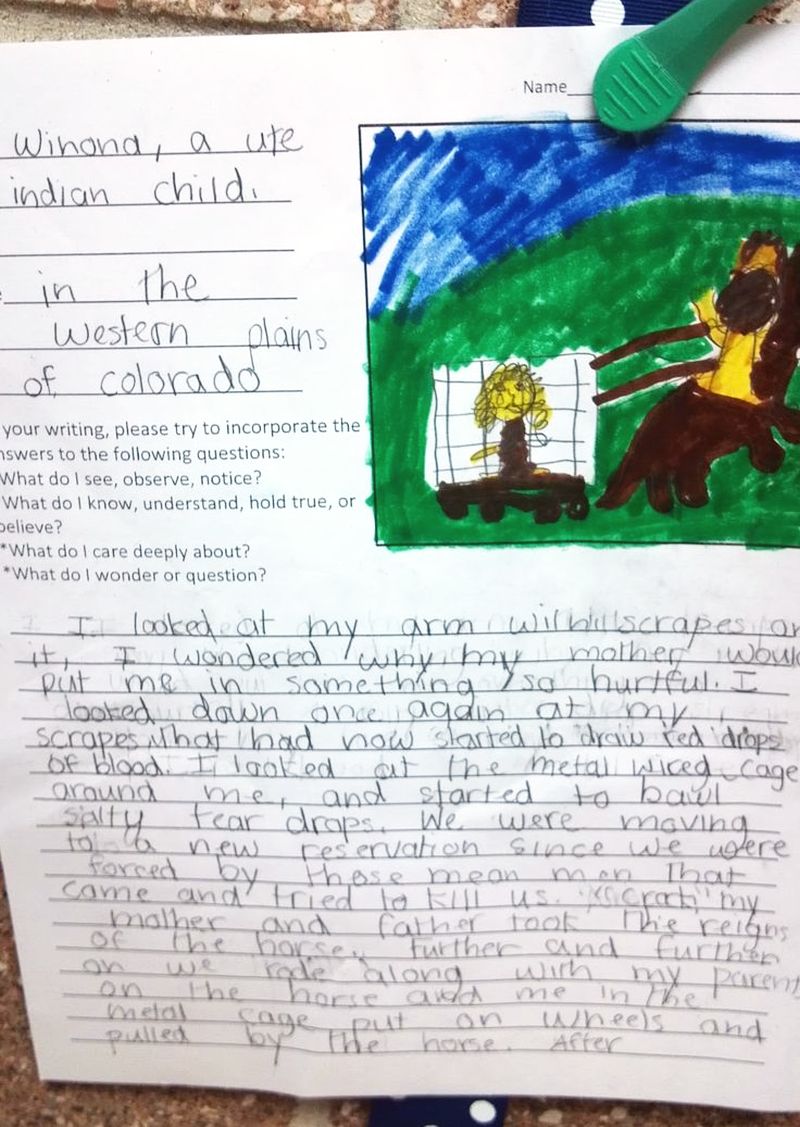 Name
Winona, a ute
indian child.
in the
western plains
of colorado
your writing, please try to incorporate the
nswers to the following questions:
What do I see, observe, notice?
What do I know, understand, hold true, or
believe?
*What do I care deeply about?
*What do I wonder or question?
I looked at my arm with scrapes on
it, I wondered why my mother would
put me in something so hurtful. I
looked down once again at my
scrapes that had now started to draw red drops
of blood. I looked at the metal wired cage
around me, and started to bawl
salty tear drops. We were moving
to a new reservation since we were
forced by those mean men that
came and tried to kill us. "Crack" my
mother and father took the reigns
of the horse. further and further
on we rode along with my parent
on the horse and me in the
metal cage put on wheels and
pulled by the horse. After